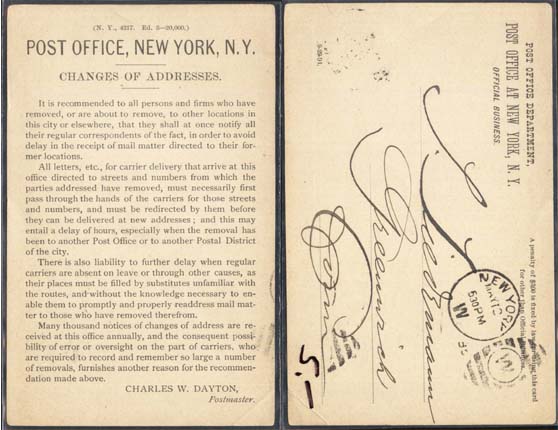 (N. Y., 4237. Ed. 5—20,000.)
POST OFFICE, NEW YORK, N.Y.
CHANGES OF ADDRESSES.
It is recommended to all persons and firms who have
removed, or are about to remove, to other locations in
this city or elsewhere, that they shall at once notify all
their regular correspondents of the fact, in order to avoid
delay in the receipt of mail matter directed to their for-
mer locations.
All letters, etc., for carrier delivery that arrive at this
office directed to streets and numbers from which the
parties addressed have removed, must necessarily first
pass through the hands of the carriers for those streets
and numbers, and must be redirected by them before
they can be delivered at new addresses; and this may
entail a delay of hours, especially when the removal has
been to another Post Office or to another Postal District
of the city.
There is also liability to further delay when regular
carriers are absent on leave or through other causes, as
their places must be filled by substitutes unfamiliar with
the routes, and without the knowledge necessary to en-
able them to promptly and properly readdress mail mat-
ter to those who have removed therefrom.
Many thousand notices of changes of address are re-
ceived at this office annually, and the consequent possi-
bility of error or oversight on the part of carriers, who
are required to record and remember so large a number
of removals, furnishes another reason for the recommen-
dation made above.
CHARLES W. DAYTON,
Postmaster.
POST OFFICE DEPARTMENT,
POST OFFICE AT NEW YORK, N. Y.
OFFICIAL BUSINESS.
A penalty of $300 is fixed by law for using this card
for other than Official Business.
NEW YORK
MAY 12
530PM
M
Greenwich
Conn